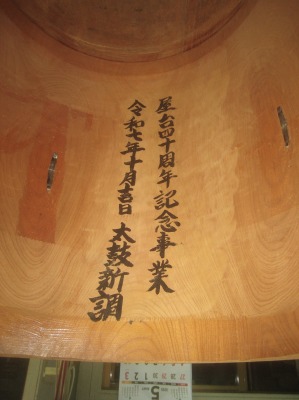 屋台四十周年記念事業
令和七年十月吉日 太鼓新調
5